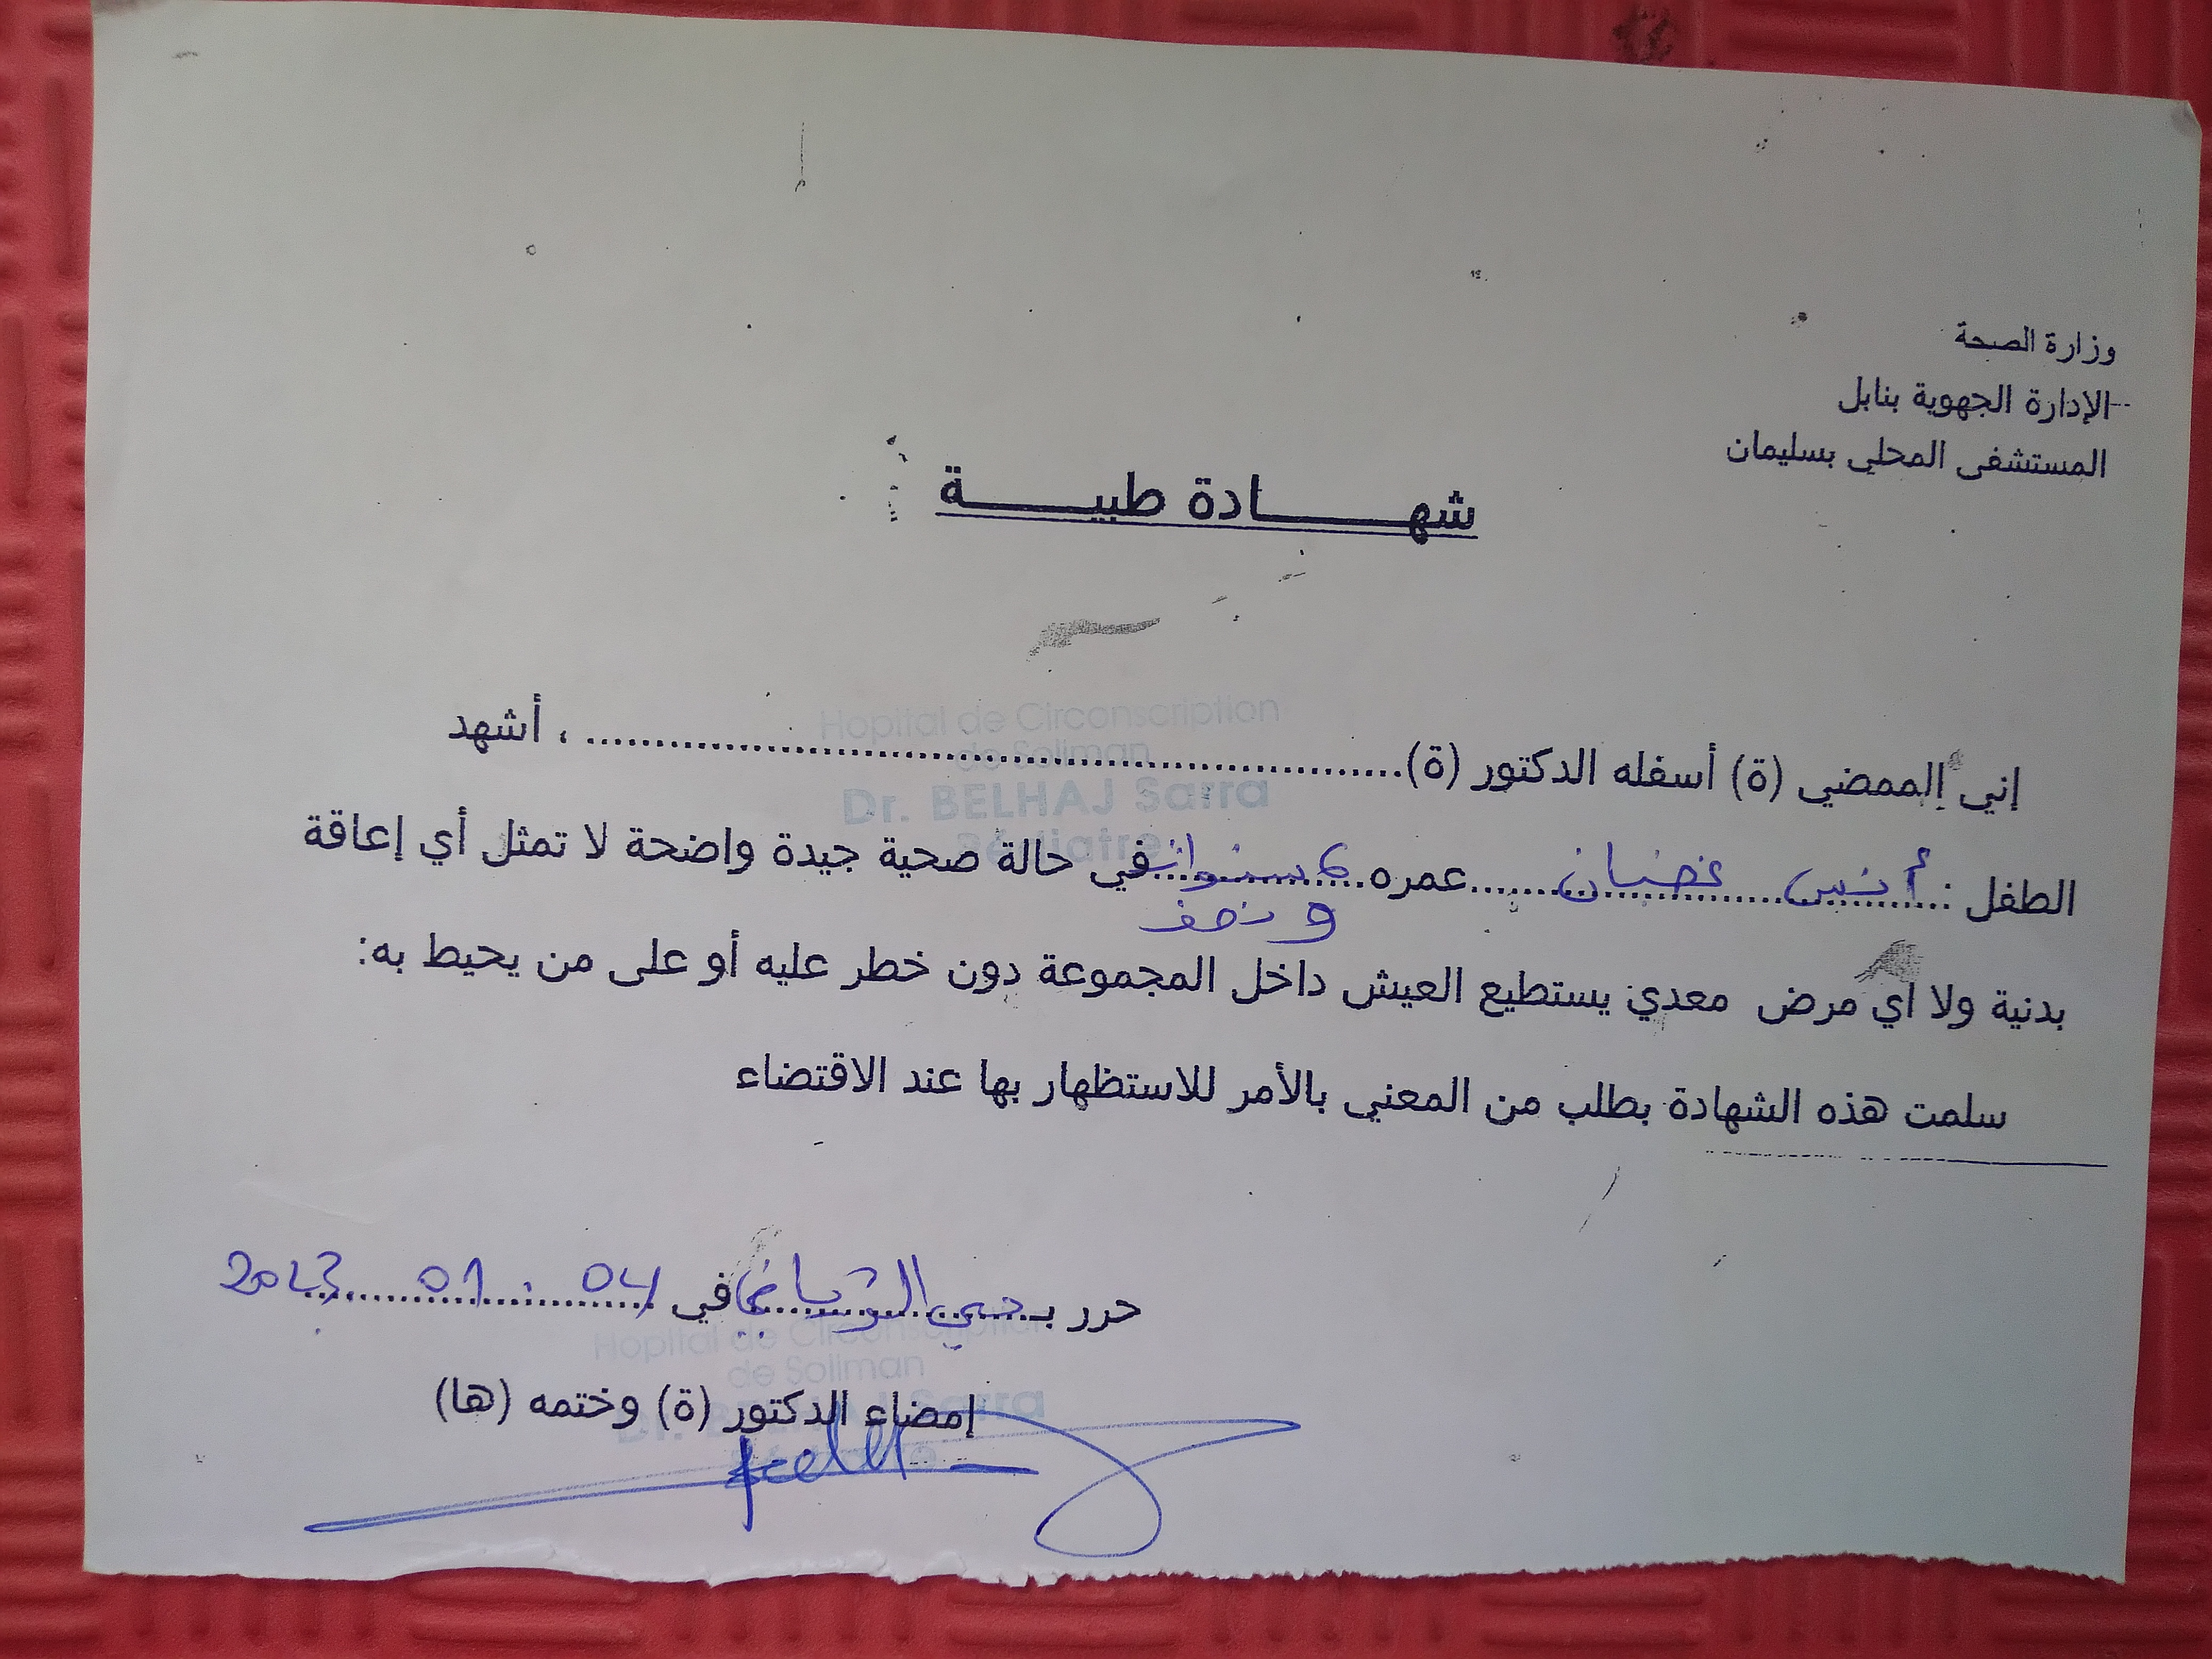 وزارة الصحة
الإدارة الجهوية بنابل
المستشفى المحلي بسليمان
شهـــــــادة طبيـــــــة
Hopital de Circonscription
de Soliman
Dr. BELHAJ Sarra
Pédiatre
إني الممضي (ة) أسفله الدكتور (ة)................................................ ، أشهد
الطفل : أنس غضبان عمره 6 سنوات في حالة صحية جيدة واضحة لا تمثل أي إعاقة
و نصف
بدنية ولا اي مرض معدي يستطيع العيش داخل المجموعة دون خطر عليه أو على من يحيط به:
سلمت هذه الشهادة بطلب من المعني بالأمر للاستظهار بها عند الاقتضاء
حرر بـ حي في 04 . 01 2023
Hopital de Circonscription
de Soliman
إمضاء الدكتور (ة) وختمه (ها)
Dr. BELHAJ Sarra
Pédiatre